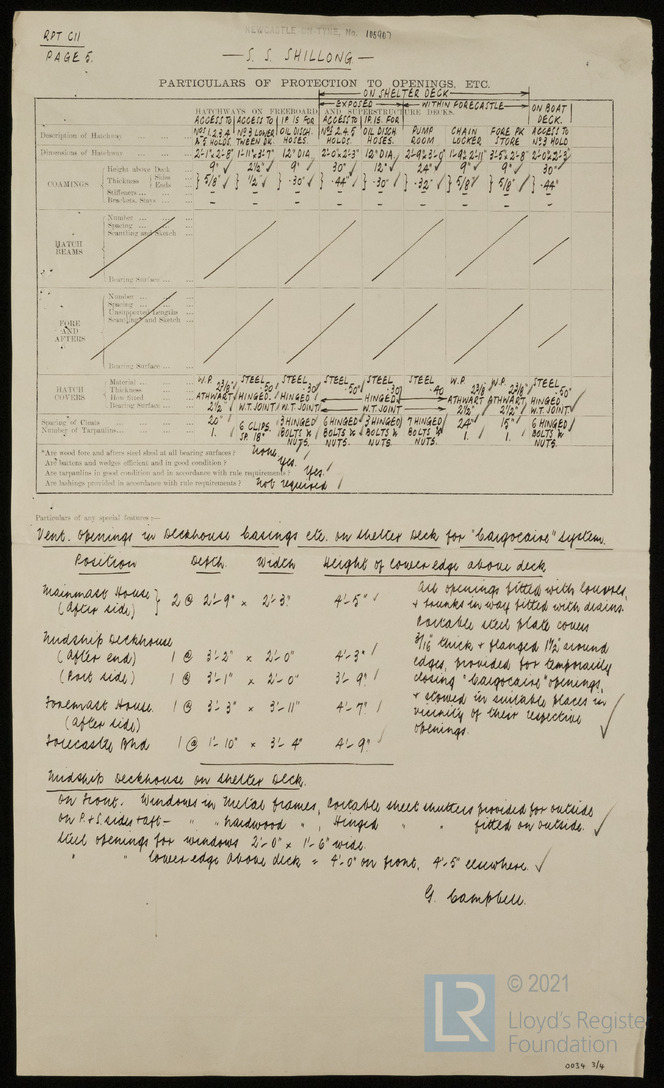 RPT C11
PAGE 5.
NEWCASTLE-ON-TYNE, No. 105907
— S. S. SHILLONG —
PARTICULARS OF PROTECTION TO OPENINGS, ETC.
ON SHELTER DECK
EXPOSED WITHIN FORECASTLE ON BOAT DECK.
HATCHWAYS ON FREEBOARD AND SUPERSTRUCTURE DECKS.
Description of Hatchway ACCESS TO Nos 1,2,3,4 & 5 HOLDS. ACCESS TO No 3 LOWER TWEEN DK. I.P. 15. FOR OIL DISCH. HOSES. ACCESS TO Nos 2,4,5 HOLDS. I.P. 15. FOR OIL DISCH. HOSES. PUMP ROOM CHAIN LOCKER FORE PK STORE ACCESS TO No 3 HOLD
Dimensions of Hatchway 2'-1" x 2'-8" 1'-11" x 3'-7" 12" DIA. 2'-0" x 2'-3" 12" DIA. 2'-9" x 3'-0" 1'-9" x 2'-11" 3'-5" x 2'-8" 2'-0" x 2'-3"
COAMINGS Height above Deck 9" 2½" 9" 30" 12" 24" 9" 9" 30"
Thickness Sides Ends 5/8" ½" .30" .44" .30" .32" 5/8" 5/8" .44"
Stiffeners – – – – – – – – –
Brackets, Stays – – – – – – – – –
HATCH BEAMS
Number
Spacing
Scantling and Sketch
Bearing Surface
FORE AND AFTERS
Number
Spacing
Unsupported Lengths
Scantling and Sketch
Bearing Surface
HATCH COVERS Material W.P. STEEL STEEL STEEL STEEL STEEL W.P. W.P. STEEL
Thickness 2 3/8" .50 .30 .50" .30 .40 2 3/8 2 3/8" .50"
How fitted ATHWART HINGED. HINGED HINGED ATHWART ATHWART HINGED
Bearing Surface 2½" W.T. JOINT W.T. JOINT W.T. JOINT 2½" 2½" W.T. JOINT
Spacing of Cleats 20" 6 CLIPS SP. 18" 3 HINGED BOLTS & NUTS 6 HINGED BOLTS & NUTS. 3 HINGED BOLTS & NUTS. 7 HINGED BOLTS & NUTS. 24" 15" 6 HINGED BOLTS & NUTS.
Number of Tarpaulins 1. 1. 1.
*Are wood fore and afters steel shod at all bearing surfaces? none.
Are battens and wedges efficient and in good condition? Yes.
Are tarpaulins in good condition and in accordance with rule requirements? Yes.
Are lashings provided in accordance with rule requirements? not required
Particulars of any special features:—
Vent. openings in Deckhouse Casings etc. on Shelter Deck for "Cargocaire" system.
Position Depth. Width Height of lower edge above deck
Mainmast House (After side) 2 @ 2'-9" x 2'-3" 4'-5"
Midship Deckhouse
(After end) 1 @ 3'-2" x 2'-0" 4'-3"
(Port side) 1 @ 3'-1" x 2'-0" 3'-9"
Foremast House. (After side) 1 @ 3'-3" x 3'-11" 4'-7"
Forecastle Bhd 1 @ 1'-10" x 3'-4" 4'-9"
All openings fitted with louvres,
& trunks in way fitted with drains.
Portable steel plate covers
3/16" thick & flanged 1½" around
edges, provided for temporarily
closing "Cargocaire" openings,
& stowed in suitable places in
vicinity of their respective
openings.
Midship Deckhouse on Shelter Deck.
On Front. Windows in metal frames, Portable steel shutters provided for outside
on P. & S. sides & aft – " " Hardwood " , Hinged " " fitted on outside.
Steel openings for windows 2'-0" x 1'-6" wide.
" " lower edge above deck = 4'-0" on front, 4'-5" elsewhere.
G. Campbell.
© 2021
LR Lloyd's Register
Foundation
0034 3/4